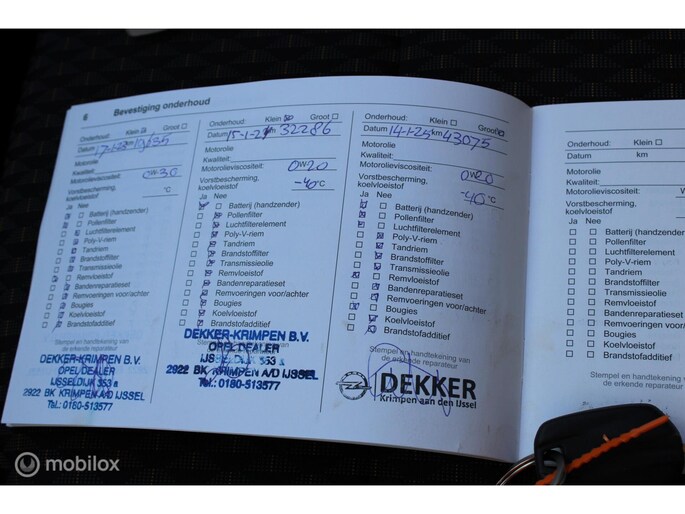 6
Bevestiging onderhoud
Onderhoud: Klein Groot
Datum km
Motorolie
Kwaliteit:
Motorolieviscositeit: 0W-30
Vorstbescherming,
koelvloeistof °C
Ja Nee
Batterij (handzender)
Pollenfilter
Luchtfilterelement
Poly-V-riem
Tandriem
Brandstoffilter
Transmissieolie
Remvloeistof
Bandenreparatieset
Remvoeringen voor/achter
Bougies
Koelvloeistof
Brandstofadditief
Stempel en handtekening van
de erkende reparateur
DEKKER-KRIMPEN B.V.
OPELDEALER
IJSSELDIJK 353 a
2922 BK KRIMPEN A/D IJSSEL
Tel.: 0180-513577
Onderhoud: Klein Groot
Datum 15-1-24 km 32286
Motorolie
Kwaliteit:
Motorolieviscositeit: 0W20
Vorstbescherming,
koelvloeistof -40 °C
Ja Nee
Batterij (handzender)
Pollenfilter
Luchtfilterelement
Poly-V-riem
Tandriem
Brandstoffilter
Transmissieolie
Remvloeistof
Bandenreparatieset
Remvoeringen voor/achter
Bougies
Koelvloeistof
Brandstofadditief
DEKKER-KRIMPEN B.V.
OPELDEALER
IJSSELDIJK 353
2922 BK KRIMPEN A/D IJSSEL
Tel.: 0180-513577
Onderhoud: Klein Groot
Datum 14-1-25 km 43075
Motorolie
Kwaliteit:
Motorolieviscositeit: 0W20
Vorstbescherming,
koelvloeistof -40 °C
Ja Nee
Batterij (handzender)
Pollenfilter
Luchtfilterelement
Poly-V-riem
Tandriem
Brandstoffilter
Transmissieolie
Remvloeistof
Bandenreparatieset
Remvoeringen voor/achter
Bougies
Koelvloeistof
Brandstofadditief
Stempel en handtekening van
de erkende reparateur
DEKKER
Krimpen aan den IJssel
Onderhoud: Klein
Datum km
Motorolie
Kwaliteit:
Motorolieviscositeit: W
Vorstbescherming,
koelvloeistof
Ja Nee
Batterij (handzender)
Pollenfilter
Luchtfilterelement
Poly-V-riem
Tandriem
Brandstoffilter
Transmissieolie
Remvloeistof
Bandenreparatieset
Remvoeringen voor/achter
Bougies
Koelvloeistof
Brandstofadditief
Stempel en handtekening van
de erkende reparateur
mobilox